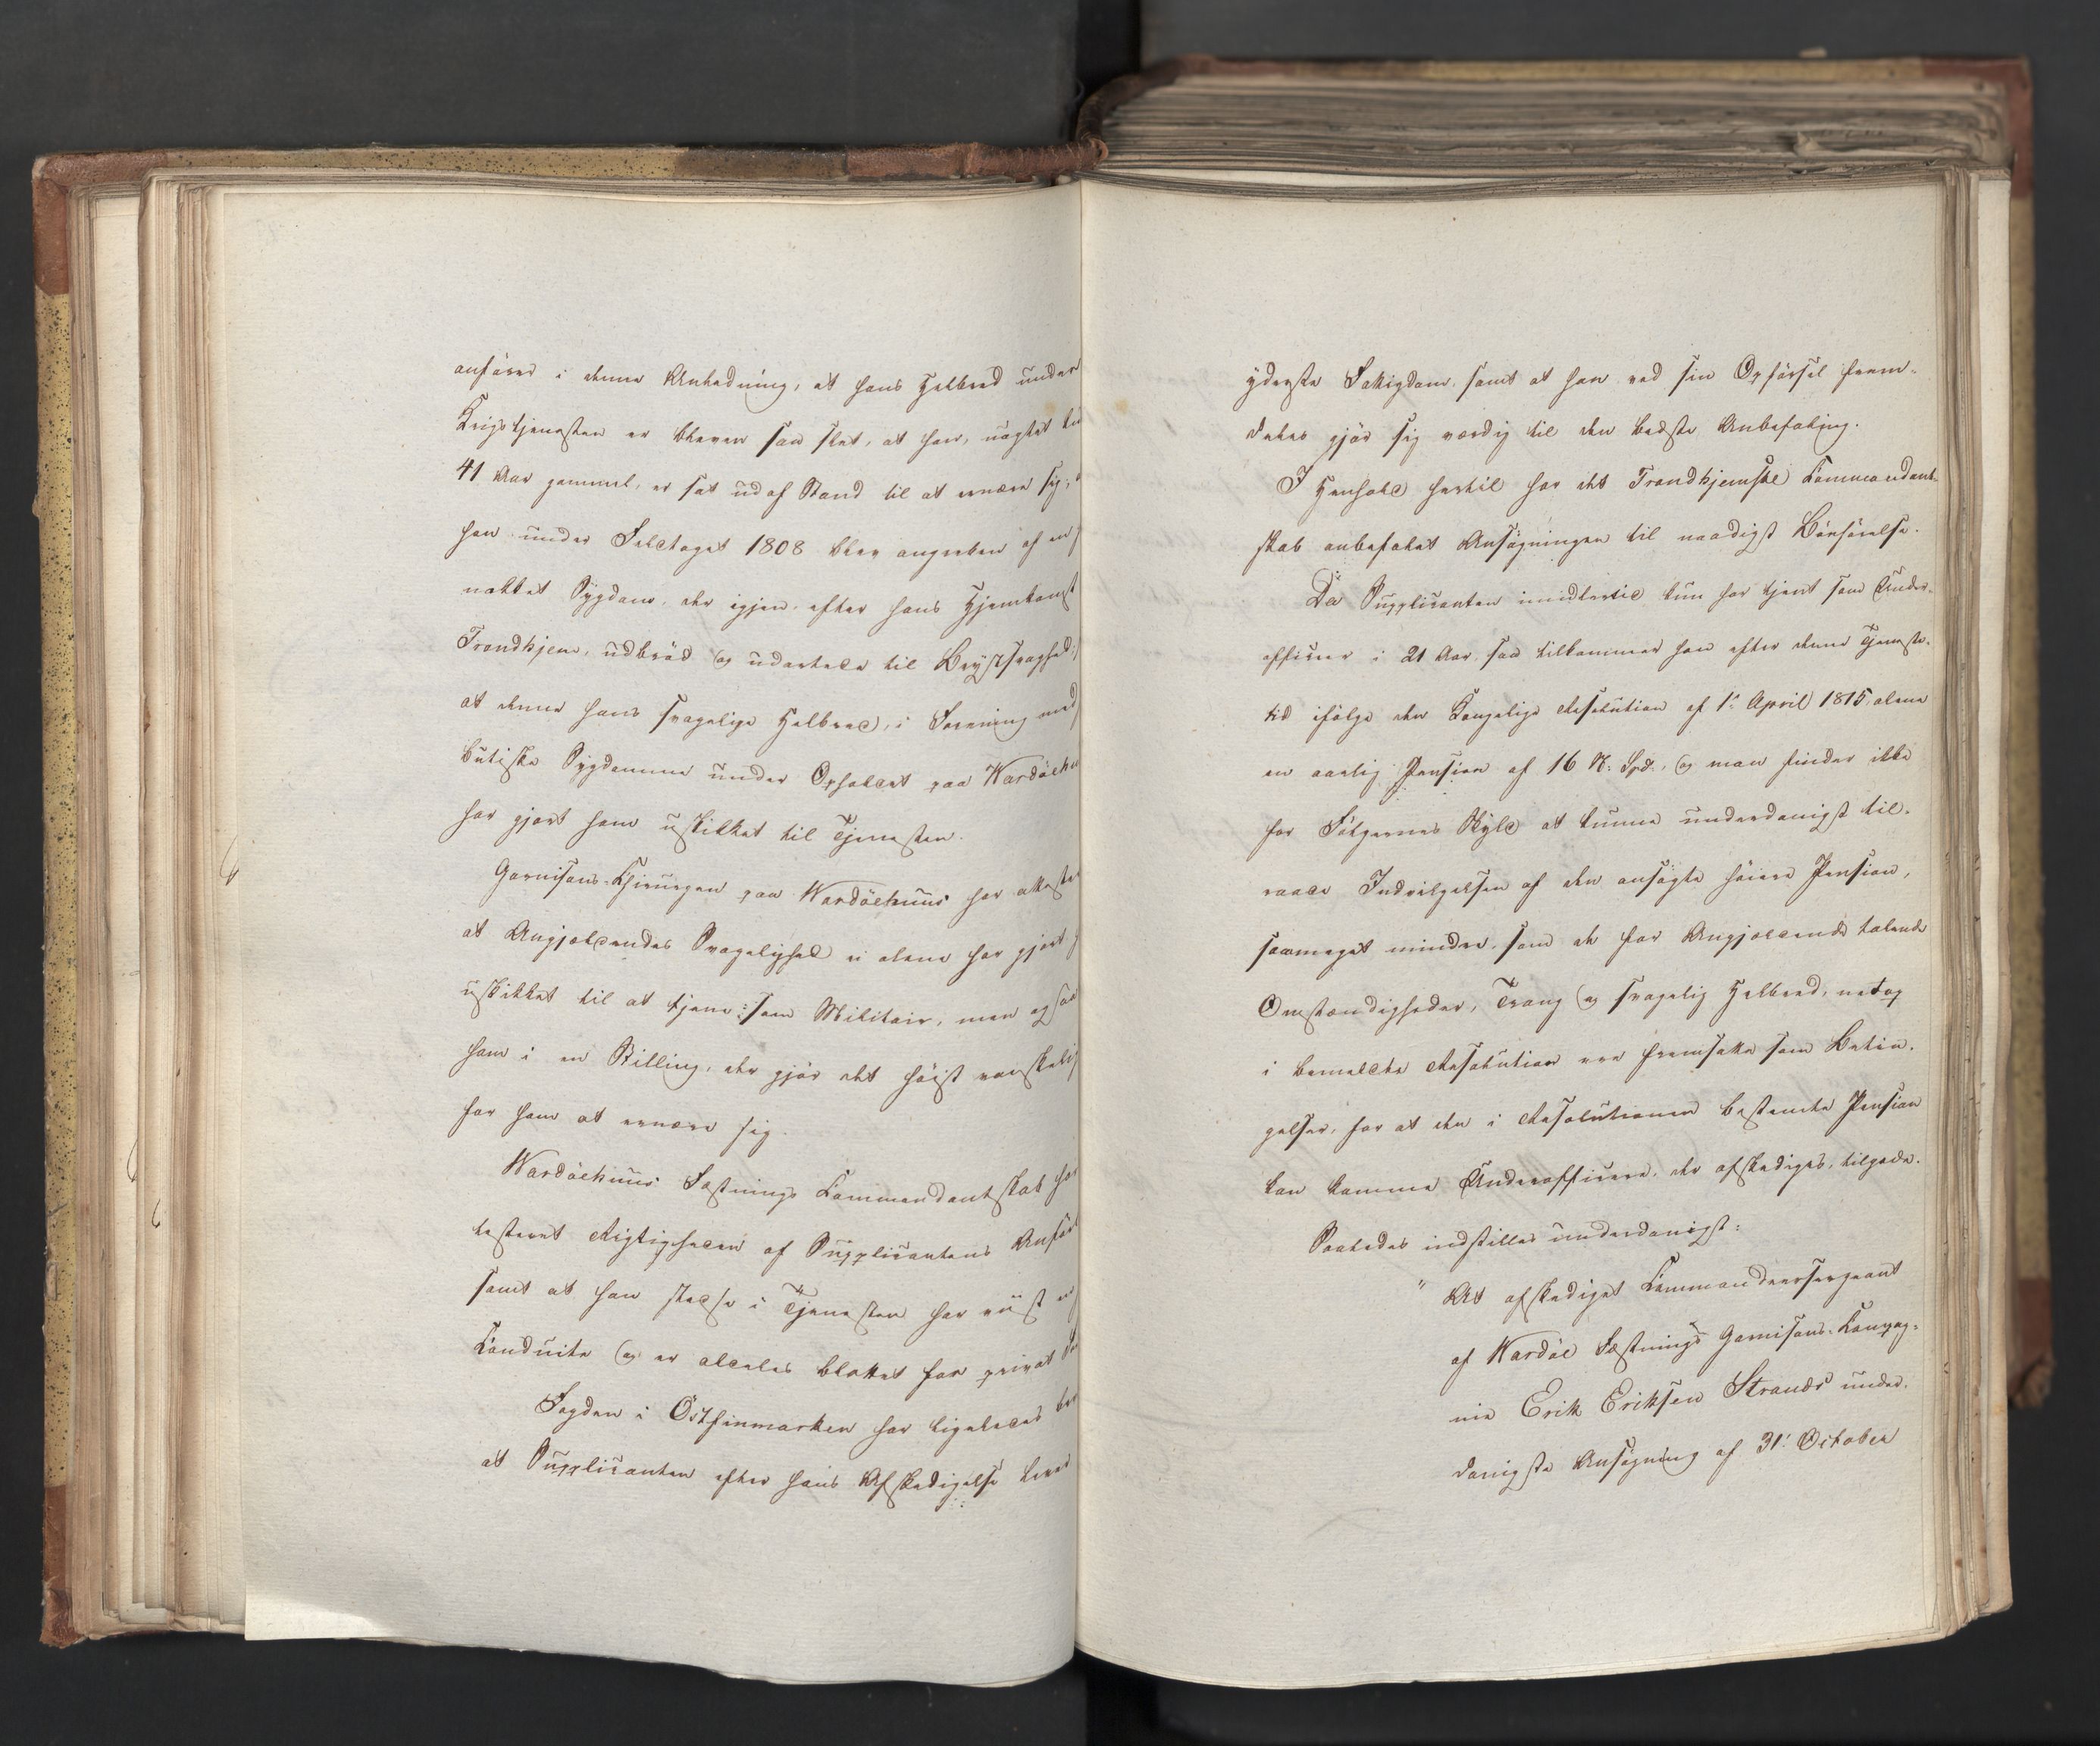 anfører i denne Anledning, at hans Helbred under
Krigstjenesten er bleven saa slet, at han, uagtet kun
41 Aar gammel, er sat ud af Stand til at ernære sig;
han under Feldtoget 1808 blev angreben af en
Sygdom, der igjen efter hans Hjemkomst
Trondhjem, udbrød og udartede til Brystsvaghed,
at denne hans svagelige Helbred, i Forening med
butiske Sygdomme under Opholdet paa Wardöehu
har gjort ham uskikket til Tjenesten.
Garnisons-Chirurgen paa Wardöehuus har atteste
at Angjældendes Svagelighed ei alene har gjort
uskikket til at tjene som Militair, men ogsaa
ham i en Stilling, der gjör det höist vanskelig
for ham at ernære sig.
Wardöehuus Fæstnings Commandantskab har
testeret Rigtigheden af Supplicantens Anför
samt at han stedse i Tjenesten har viist en
Conduite og er aldeles blottet for privat For
Fogden i Östfinmarken har ligeledes be
at Supplicanten efter hans Afskedigelse lever
yderste Fattigdom, samt at han ved sin Opförsel frem-
deles gjör sig værdig til den bedste Anbefaling.
I Henhold hertil har det Trondhjemske Commandant-
skab anbefalet Ansögningen til naadigst Bönhörelse.
Da Supplicanten imidlertid kun har tjent som Under-
officeer i 21 Aar, saa tilkommer han efter denne Tjeneste-
tid ifölge den Kongelige Resolution af 1ste April 1815 alene
en aarlig Pension af 16 R. Spd., og man finder ikke
for Fölgernes Skyld at kunne underdanigst til-
raade Indvilgelsen af den ansögte höiere Pension,
saameget mindre, som de for Angjældende talende
Omstændigheder, Trang og svagelig Helbred, netop
i bemeldte Resolution ere fremsatte som Betin-
gelser, for at den i Resolutionen bestemte Pension
kan komme Underofficerer, der afskediges, tilgode.
Saaledes indstilles underdanigst:
"At afskediget Commandeersergeant
af Wardöe Fæstnings Garnisons-Compag-
nie Erik Eriksen Strands under-
danigste Ansögning af 31. October